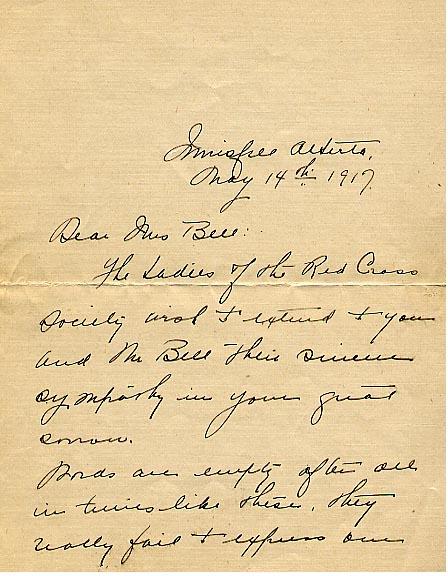 Innisfree Alberta,
May 14th 1917.
Dear Mrs Bell:
The Ladies of the Red Cross
Society wish to extend to you
and Mr Bell their sincere
sympathy in your great
sorrow.
Words are empty after all
in times like these, they
really fail to express our